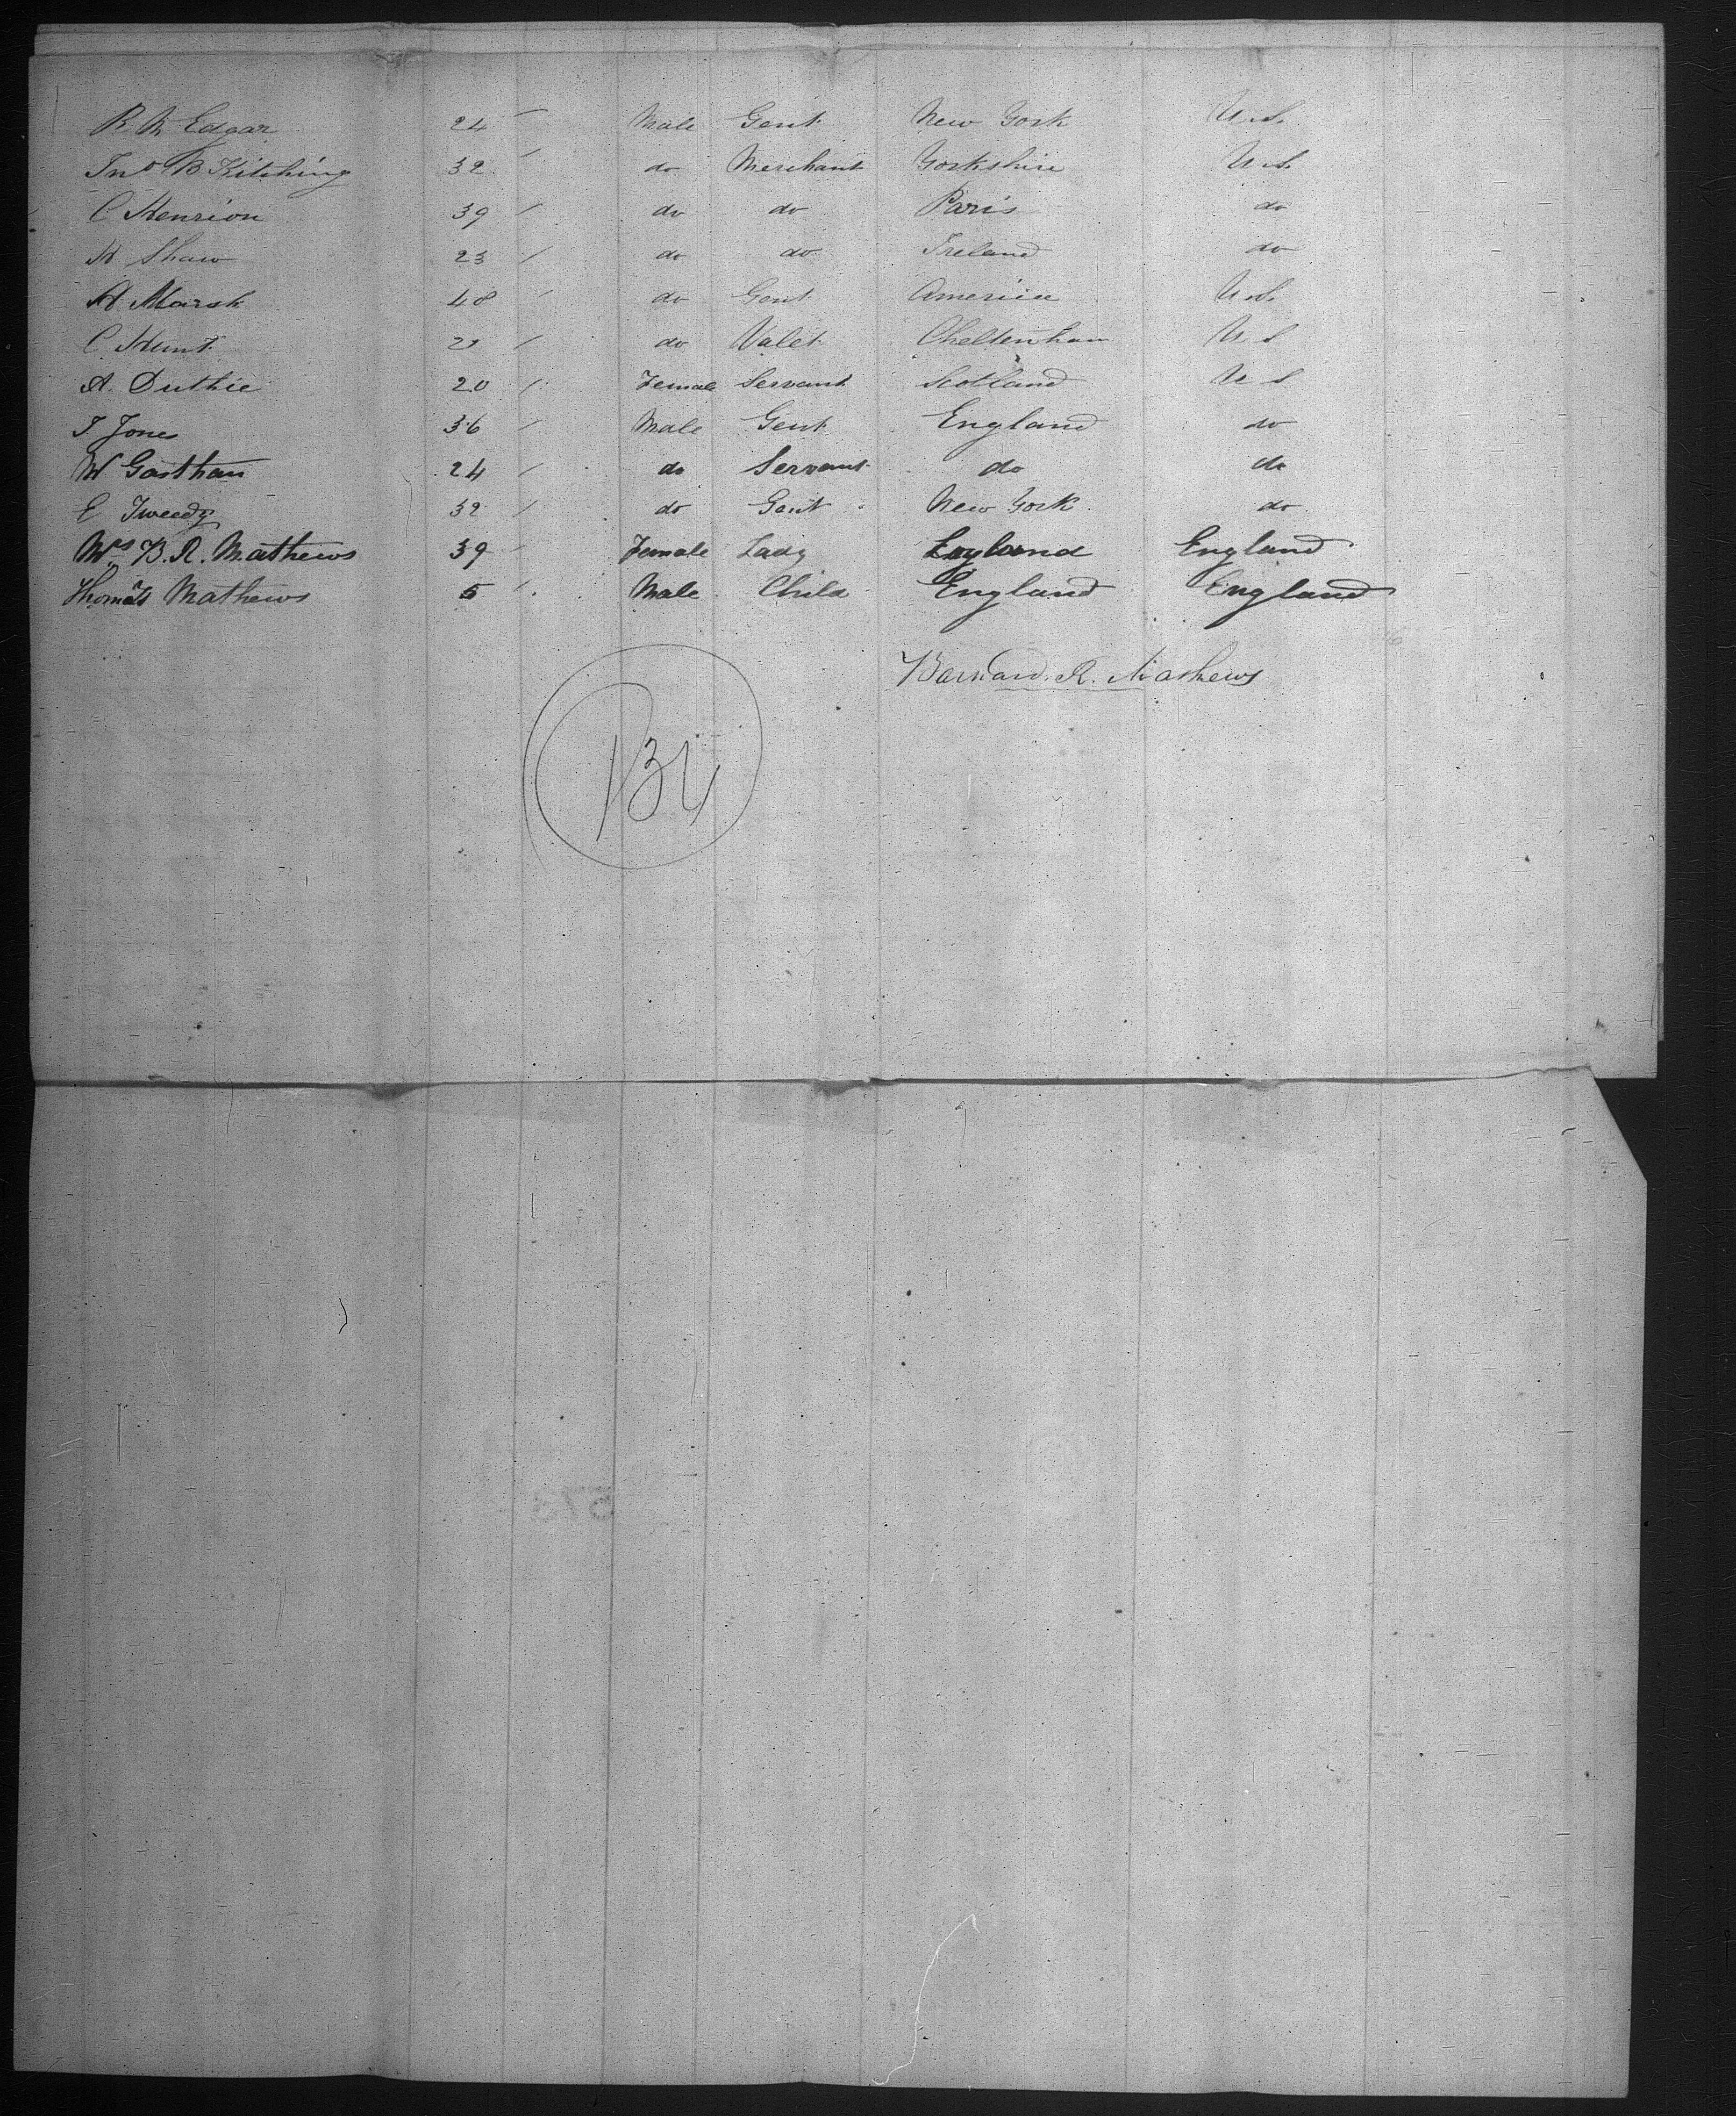 R M Edgar 24 / Male Gent New York U.S.
Jno B Kitching 32 / do Merchant Yorkshire U.S.
C Henrion 39 / do do Paris do
H Shaw 23 / do do Ireland do
A Marsh 48 / do Gent America U.S.
C Hunt / do Valet Cheltenham U S
A. Duthie 20 / Female Servant Scotland U S
T Jones 36 / Male Gent England do
W Gasthan 24 / do Servant do do
E Tweedy 32 / do Gent New York do
Mrs B. R. Mathews 39 / Female Lady England England
Thomas Mathews 5 / Male Child England England
Barnard. R. Mathews
134